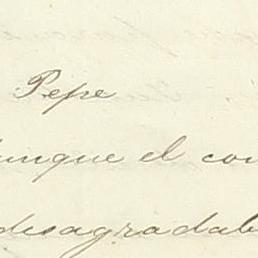 Pepe
unque el con
desagradab